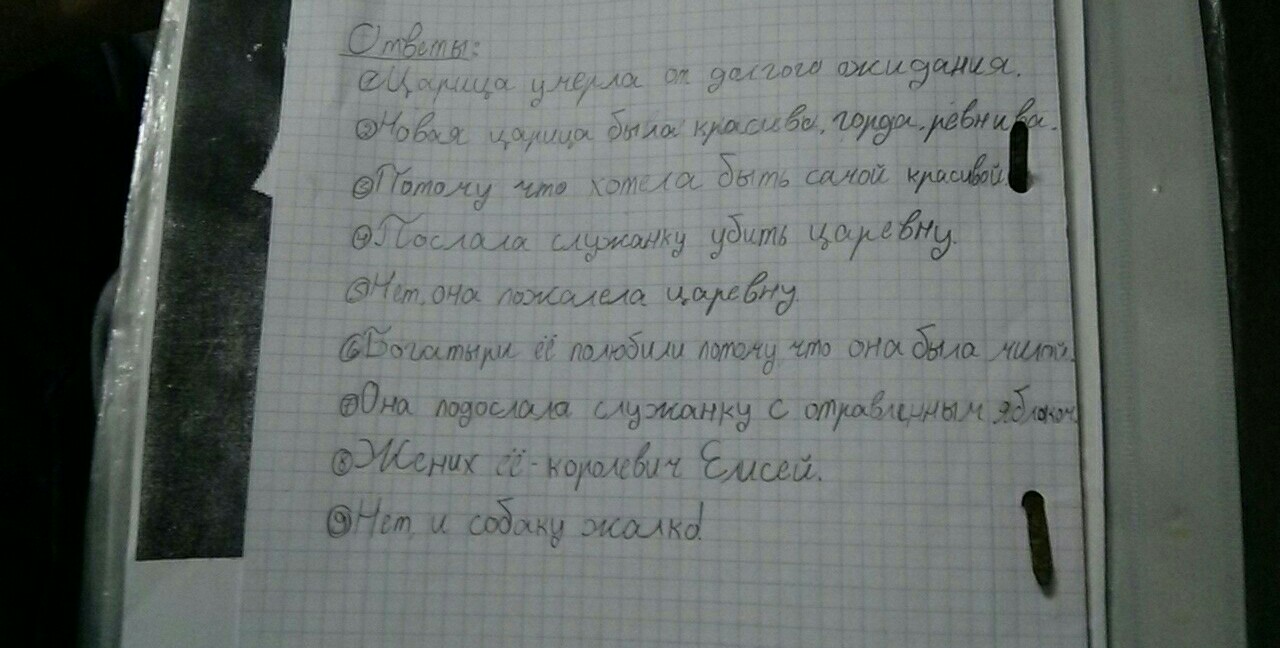 Ответы:
① Царица умерла от долгого ожидания.
② Новая царица была красива, горда, ревнива.
③ Потому что хотела быть самой красивой
④ Послала служанку убить царевну.
⑤ Нет, она пожалела царевну.
⑥ Богатыри её полюбили потому что она была милой.
⑦ Она подослала служанку с отравленным яблоком
⑧ Жених её - королевич Елисей.
⑨ Нет, и собаку жалко!